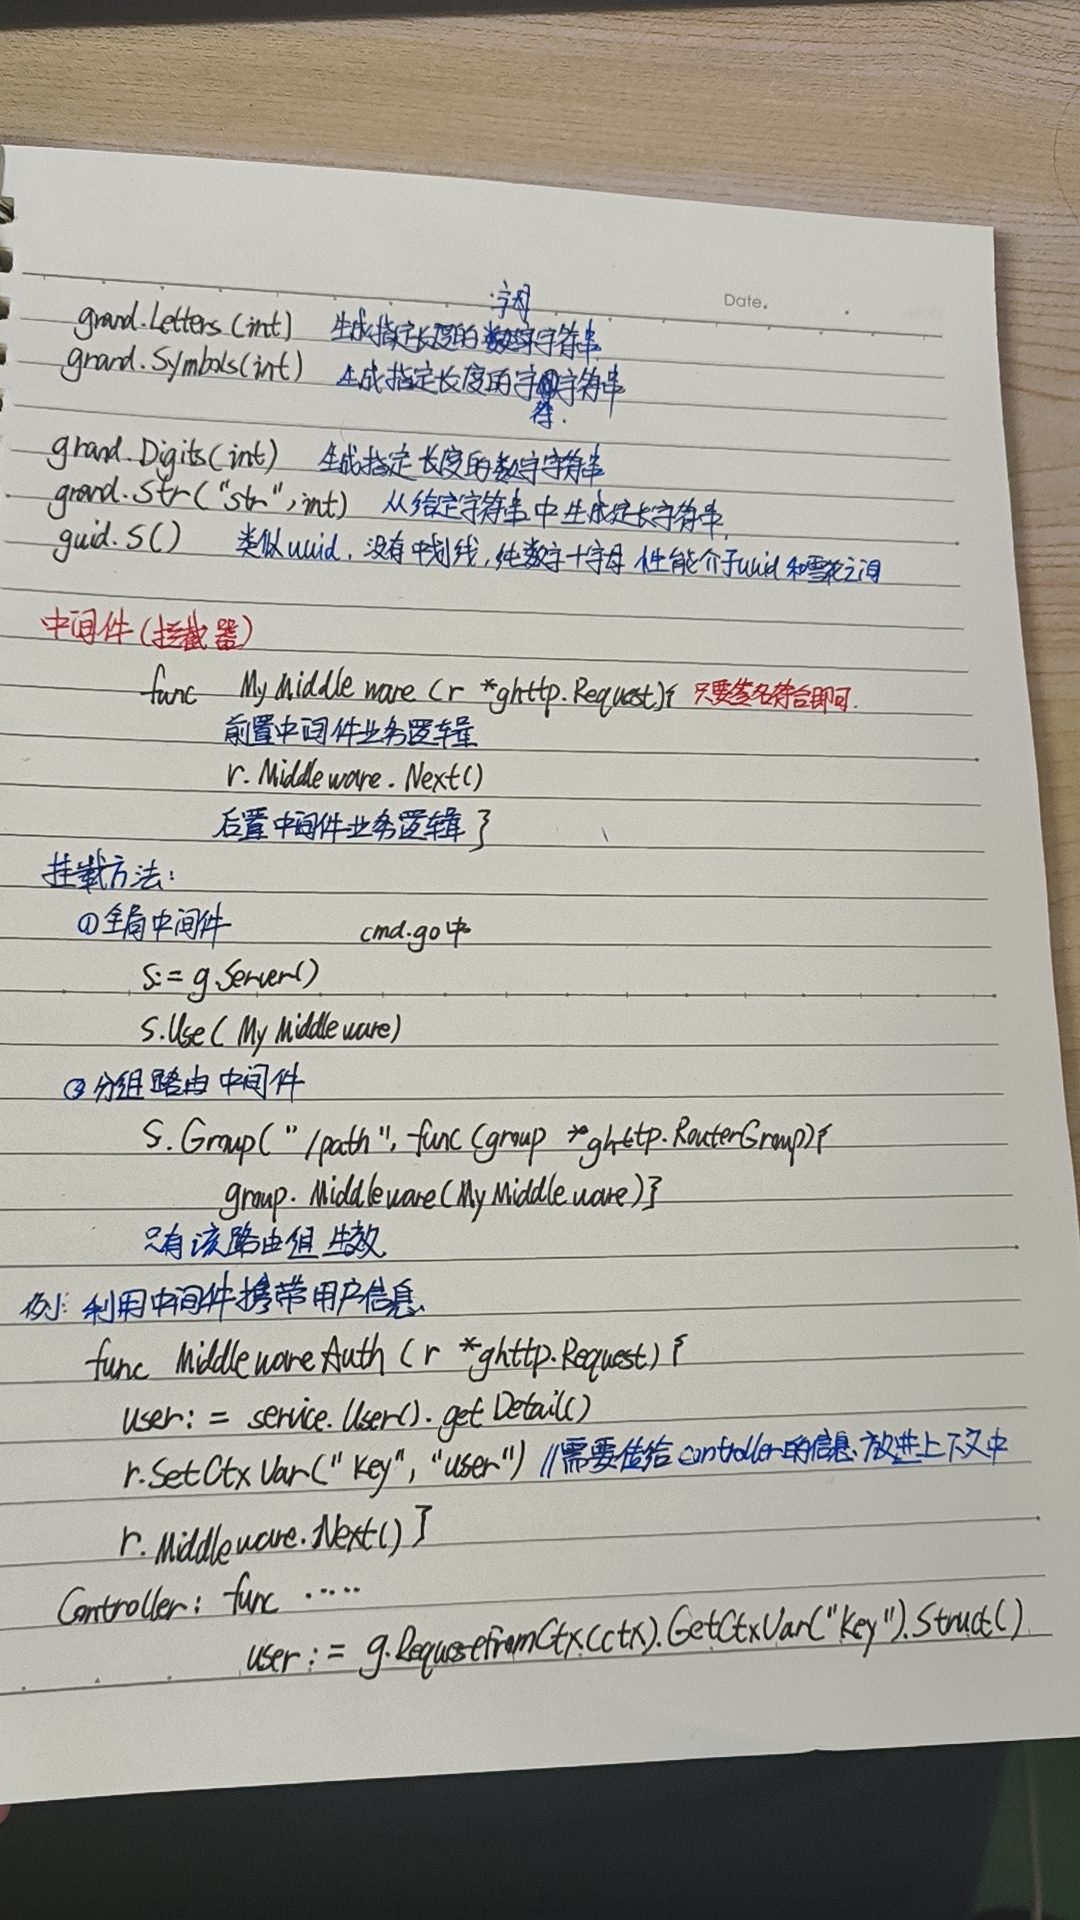 Date.
grand.Letters(int) 生成指定长度的字母字符串
grand.Symbols(int) 生成指定长度的字符字符串
grand.Digits(int) 生成指定长度的数字字符串
grand.Str("str", int) 从给定字符串中生成定长字符串
guid.S() 类似uuid,没有中划线,纯数字+字母 性能介于uuid和雪花之间
中间件(拦截器)
func MyMiddleware(r *ghttp.Request){ 只要签名符合即可.
前置中间件业务逻辑
r.Middleware.Next()
后置中间件业务逻辑 }
挂载方法:
①全局中间件 cmd.go中
s:= g.Server()
s.Use(MyMiddleware)
②分组路由中间件
s.Group("/path", func(group *ghttp.RouterGroup){
group.Middleware(MyMiddleware)}
只有该路由组生效
例: 利用中间件携带用户信息
func MiddlewareAuth(r *ghttp.Request){
user:= service.User().getDetail()
r.SetCtxVar("Key", "user") //需要传给controller的信息,放进上下文中
r.Middleware.Next()}
Controller: func ·····
user:= g.RequestFromCtx(ctx).GetCtxVar("Key").Struct()